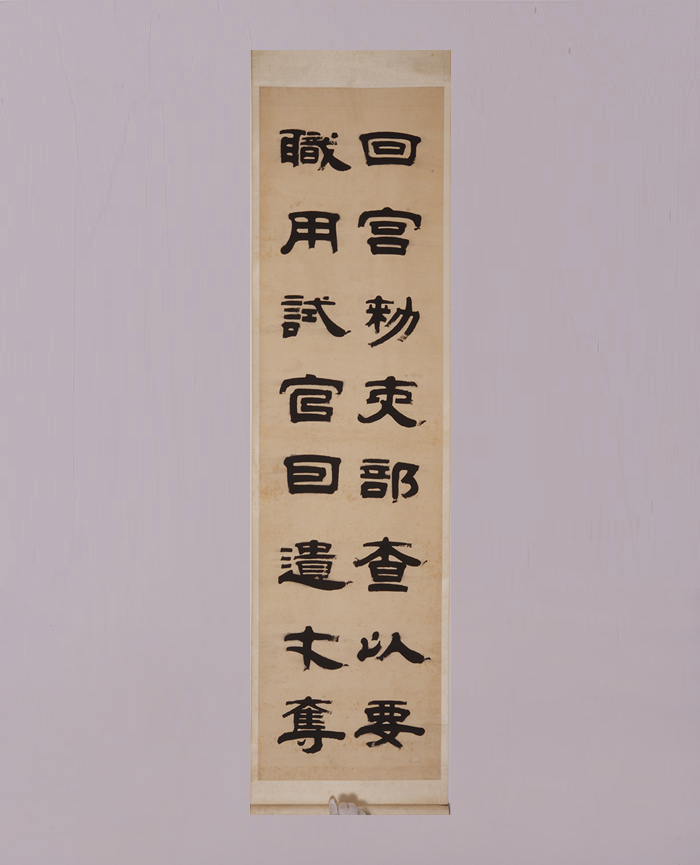 回宮勅吏部查以要
職用試官囙遺才奪